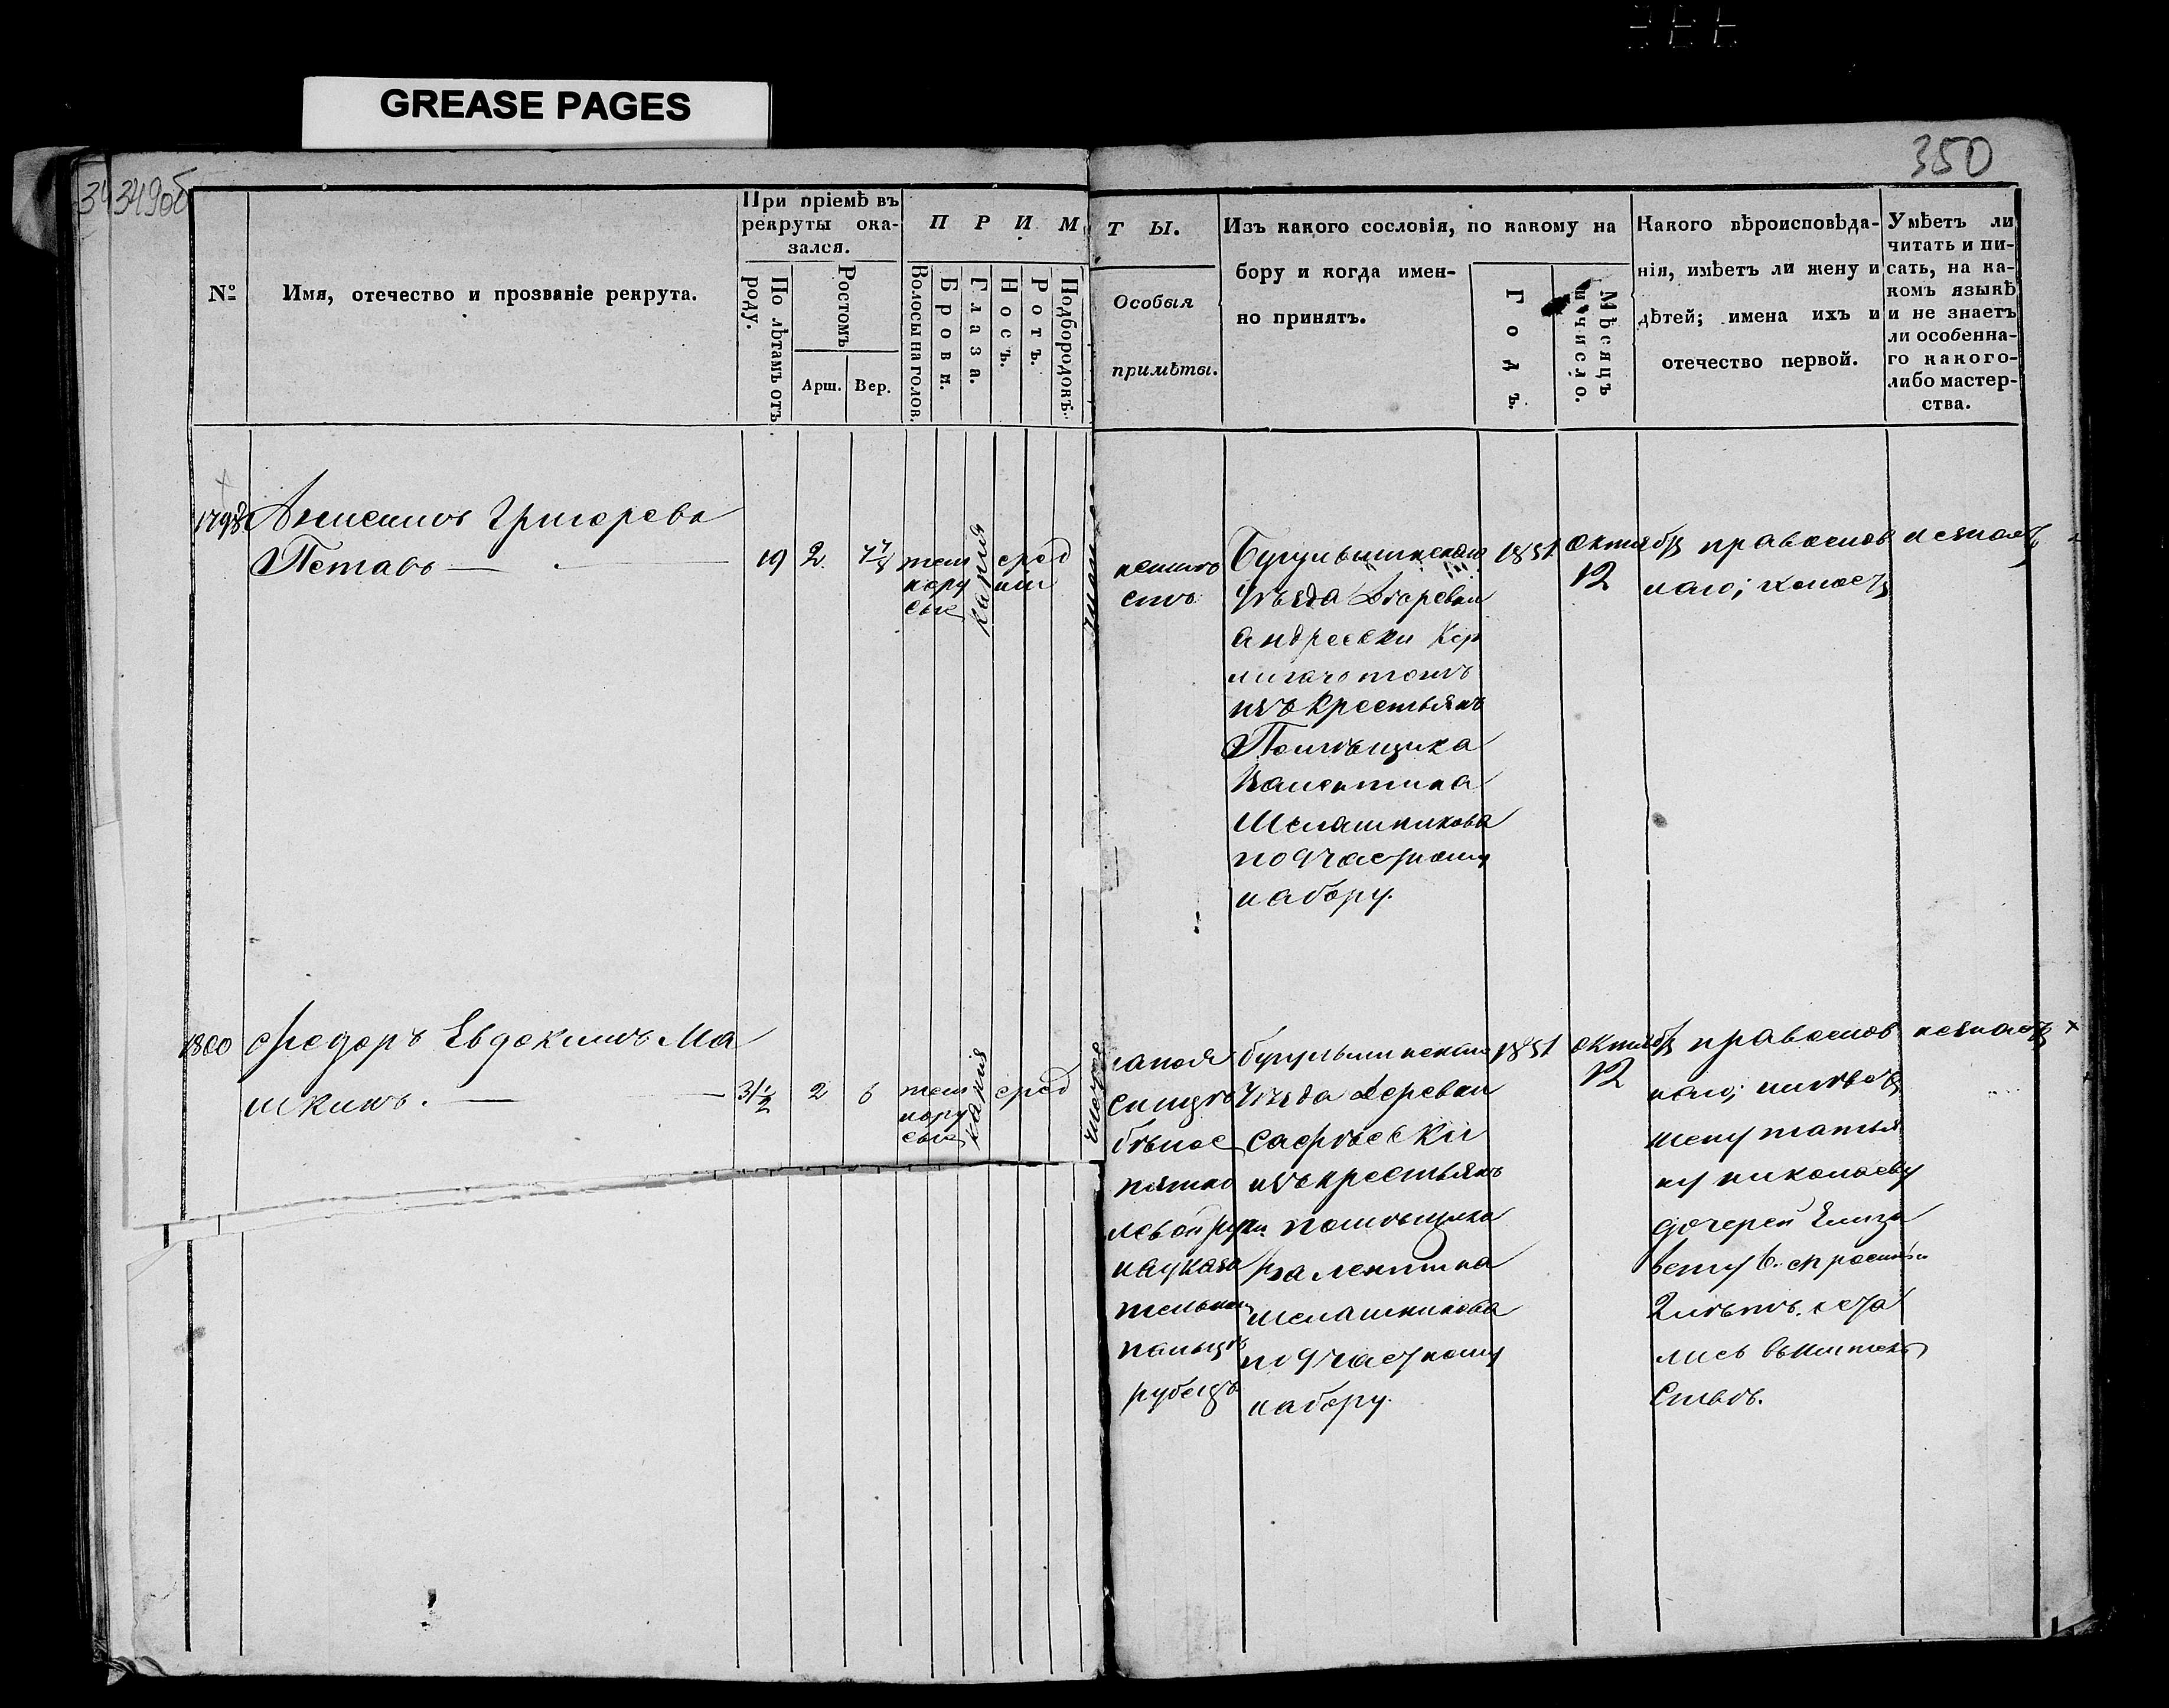 GREASE PAGES
349об
350
№
Имя, отечество и прозваніе рекрута.
При пріемѣ въ
рекруты ока-
зался.
По лѣтамъ отъ
роду.
Ростомъ
Арш. Вер.
П Р И М
Волосы на голов.
Брови.
Глаза.
Носъ.
Ротъ.
Подбородокъ.
Т Ы.
Особыя
примѣты.
Изъ какого сословія, по какому на
бору и когда имен-
но принятъ.
Годъ.
Мѣсяцъ
и число.
Какого вѣроисповѣда-
нія, имѣетъ ли жену и
дѣтей; имена ихъ и
отечество первой.
Умѣетъ ли
читать и пи-
сать, на ка-
комъ языкѣ
и не знаетъ
ли особенна-
го какого-
либо мастер-
ства.
Григорева
19 2
тем
нору
сые
карія
сред
ніи
Бугульминскаго
уѣзда Деревни
андреевки
изъ крестьянъ
Помѣщика
Валентина
Шелашникова
по 9 частному
набору.
1851
октябр
12
православ
наго; холостъ
незнаетъ
1800
Федоръ Евдокимовъ Ма
шкинъ.
31½ 2 6
тем
нору
сые
карія
сред
бугульминскаго
уѣзда Деревни
изъ крестьянъ
помѣщика
Валентина
шелашникова
по 9 частному
набору.
бѣлое
пятно
левой руки
на указа
тельном
пальцѣ
рубецъ
1851
октябр
12
православ
наго; имѣетъ
жену татья
ну николаеву
дочерей Елиза
вету 6.
2 лѣтъ.
незнаетъ